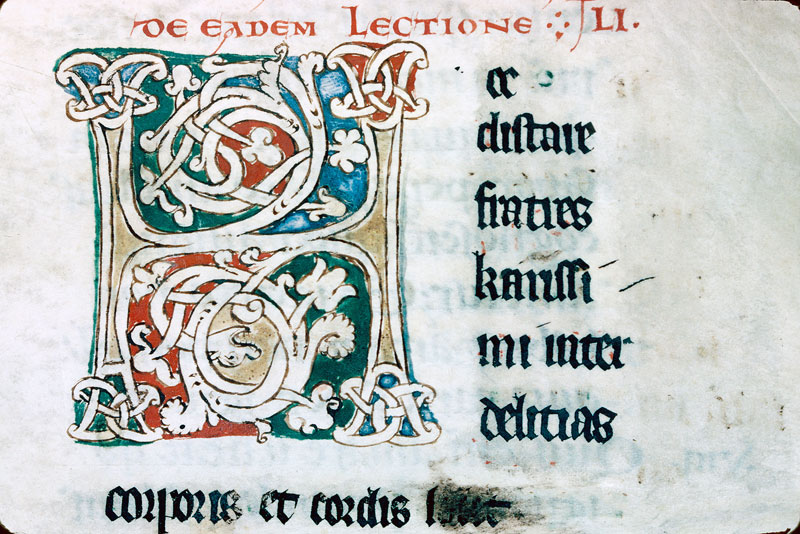 DE EADEM LECTIONE LI.
Hoc
distare
fratres
karissi
mi inter
delitias
corporis et cordis